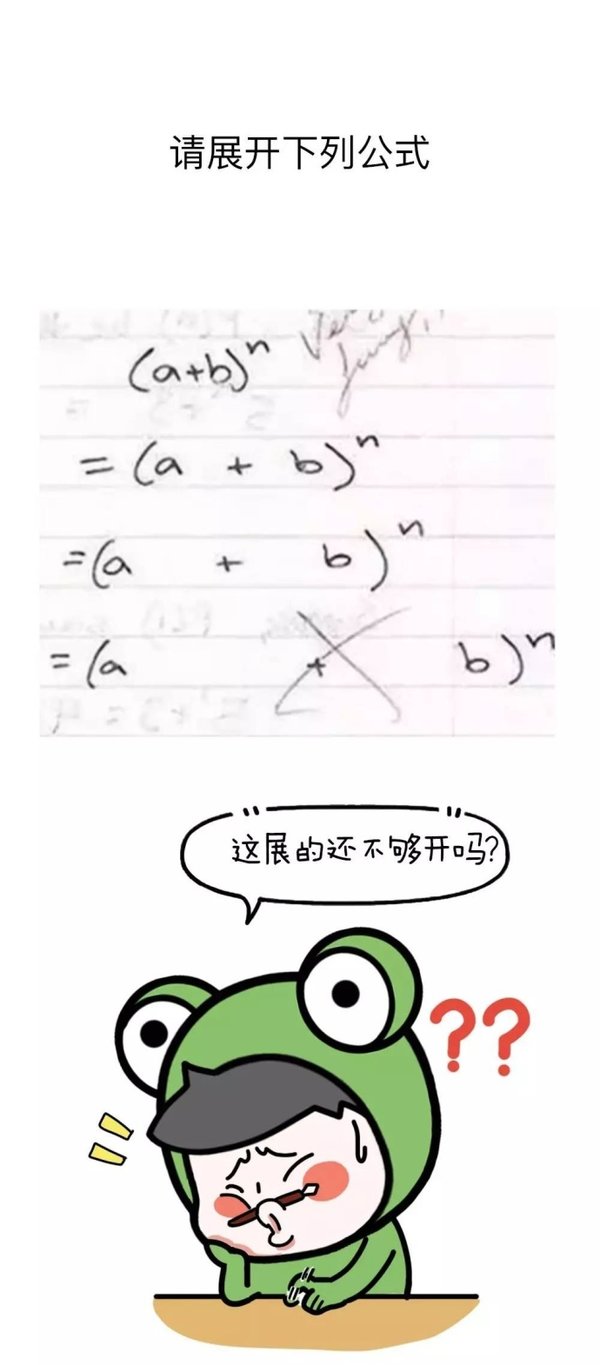 请展开下列公式
(a+b)ⁿ
= (a + b)ⁿ
=(a + b)ⁿ
= (a + b)ⁿ
这展的还不够开吗?
??